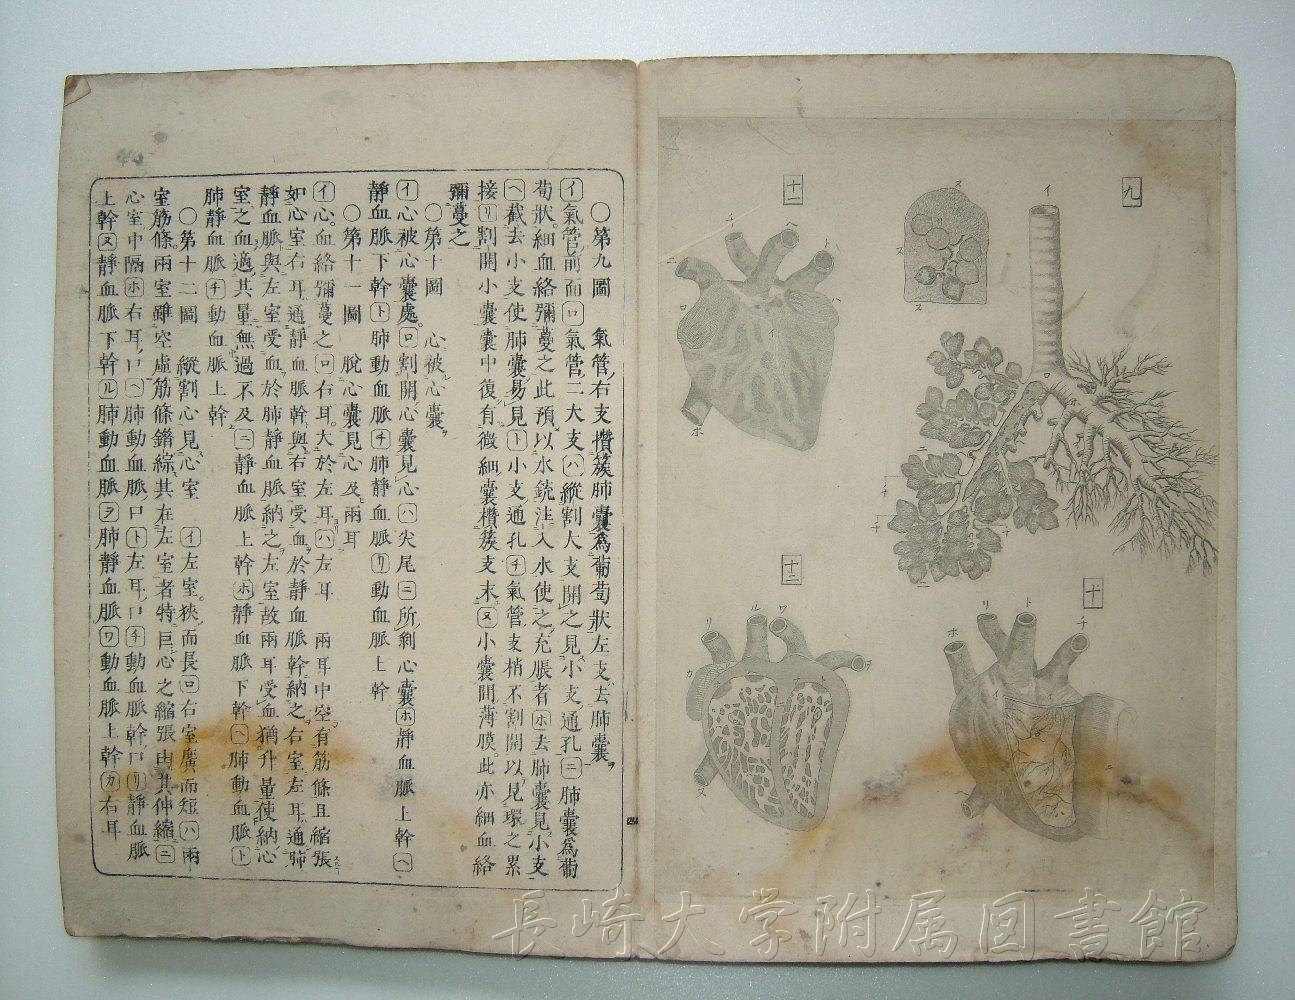 九
十一
十二
十
○第九圖 氣管右支攢簇肺囊爲葡萄狀左支去肺囊
㋑氣管前面㋺氣管二大支㋩縱割大支開之見小支通孔㊁肺囊爲葡
萄狀細血絡彌蔓之此預以水銃注入水使之充脹者㋭去肺囊見小支
㋬截去小支使肺囊易見㋣小支通孔㋠氣管支梢不割開以見環之累
接㋷割開小囊囊中復有微細囊攢簇支末㋦小囊間薄膜此亦細血絡
彌蔓之
○第十圖 心被心囊
㋑心被心囊處㋺割開心囊見心㋩尖尾㋥所剝心囊㋭靜血脈上幹㋬
靜血脈下幹㋣肺動血脈㋠肺靜血脈㋷動血脈上幹
○第十一圖 脫心囊見心及兩耳
㋑心血絡彌蔓之㋺右耳大於左耳㋩左耳 兩耳中空有筋條且縮張
如心室右耳通靜血脈幹與右室受血於靜血脈幹納之右室左耳通肺
靜血脈與左室受血於肺靜血脈納之左室故兩耳受血猶升量使納心
室之血適其量無過不及㋥靜血脈上幹㋭靜血脈下幹㋬肺動血脈㋣
肺靜血脈㋠動血脈上幹
○第十二圖 縱割心見心室 ㋑左室狹而長㋺右室廣而短㋩兩
室筋條兩室雖空虛筋條鏪綜其在左室者特巨心之縮張由其伸縮㋥
心室中隔㋭右耳口㋬肺動血脈口㋣左耳口㋠動血脈幹口㋷靜血脈
上幹㋦靜血脈下幹㋸肺動血脈㋾肺靜血脈㋻動血脈上幹㋕右耳
長崎大学附属図書館